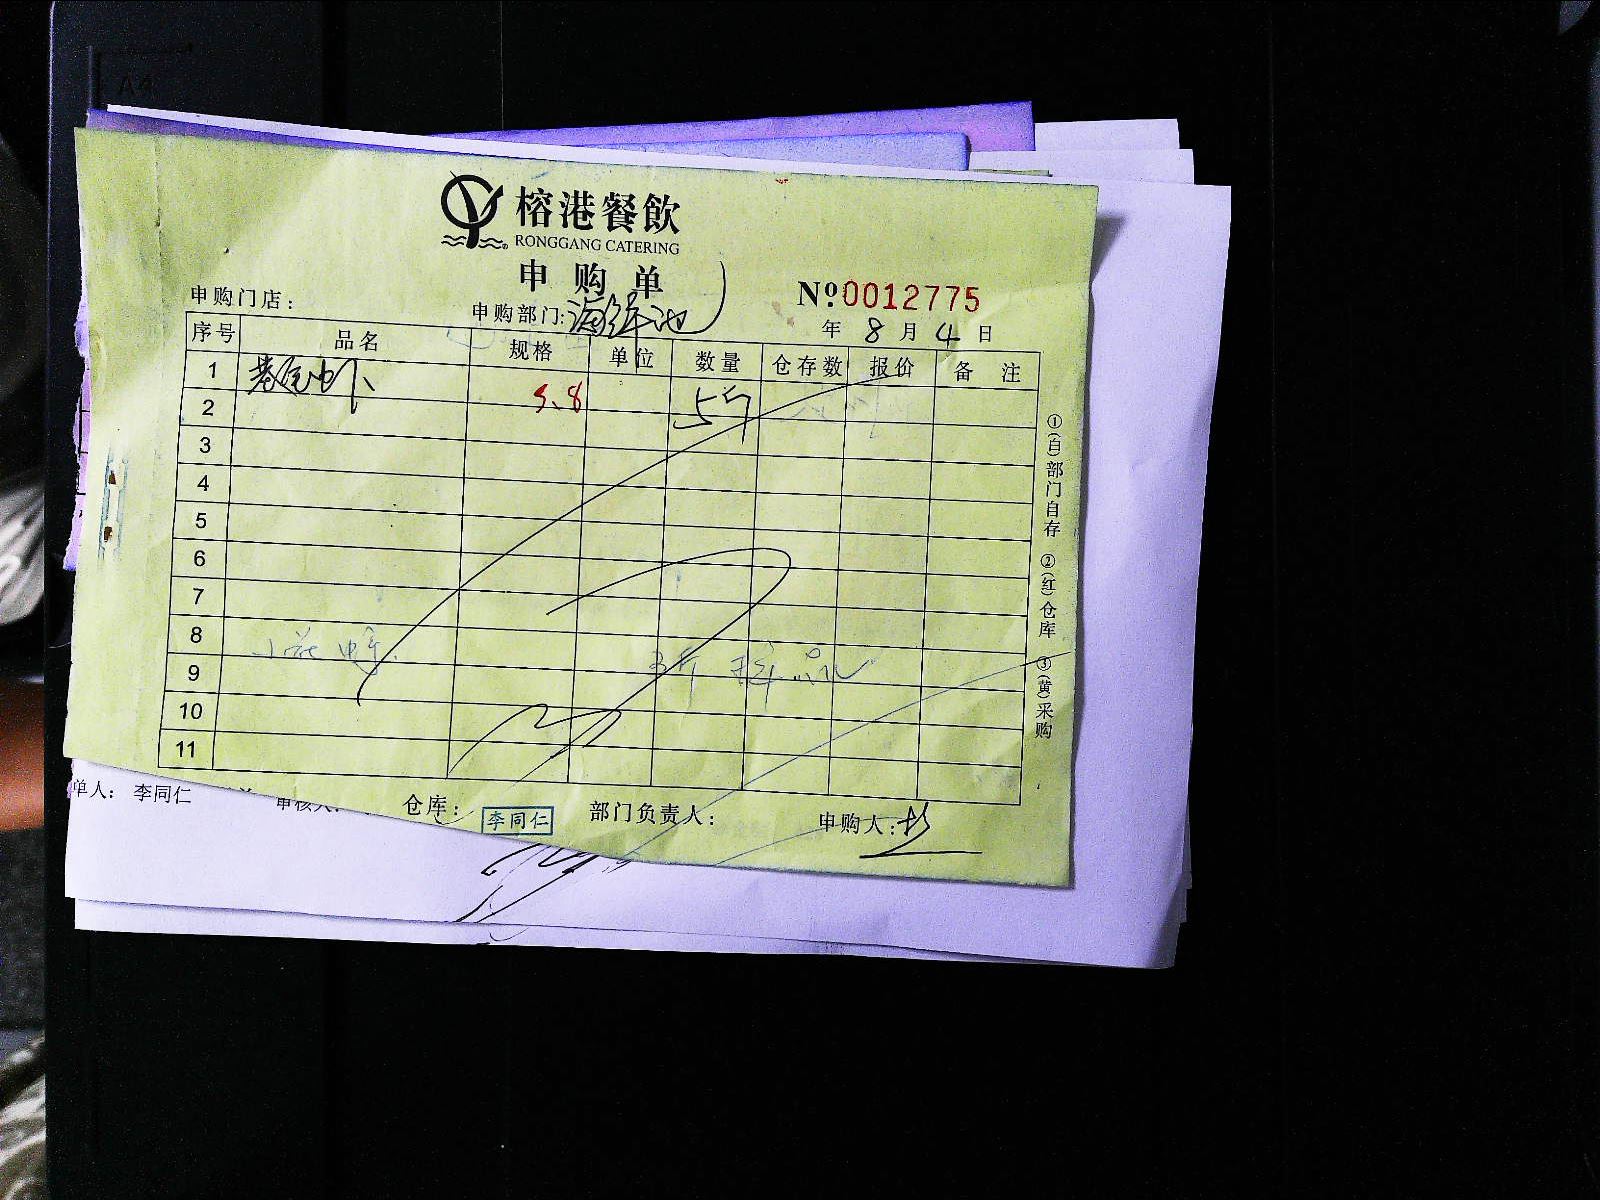 A4
榕港餐飲
RONGGANG CATERING
申购单
№0012775
申购门店：
申购部门:海鲜池
年 8 月 4 日
序号 品名 规格 单位 数量 仓存数 报价 备 注
1
5.8 5斤
2
3
4
5
6
7
8
9
10
11
①(白)部门自存 ②(红)仓库 ③(黄)采购
单人： 李同仁
审核人:
仓库：
李同仁
部门负责人：
申购人: